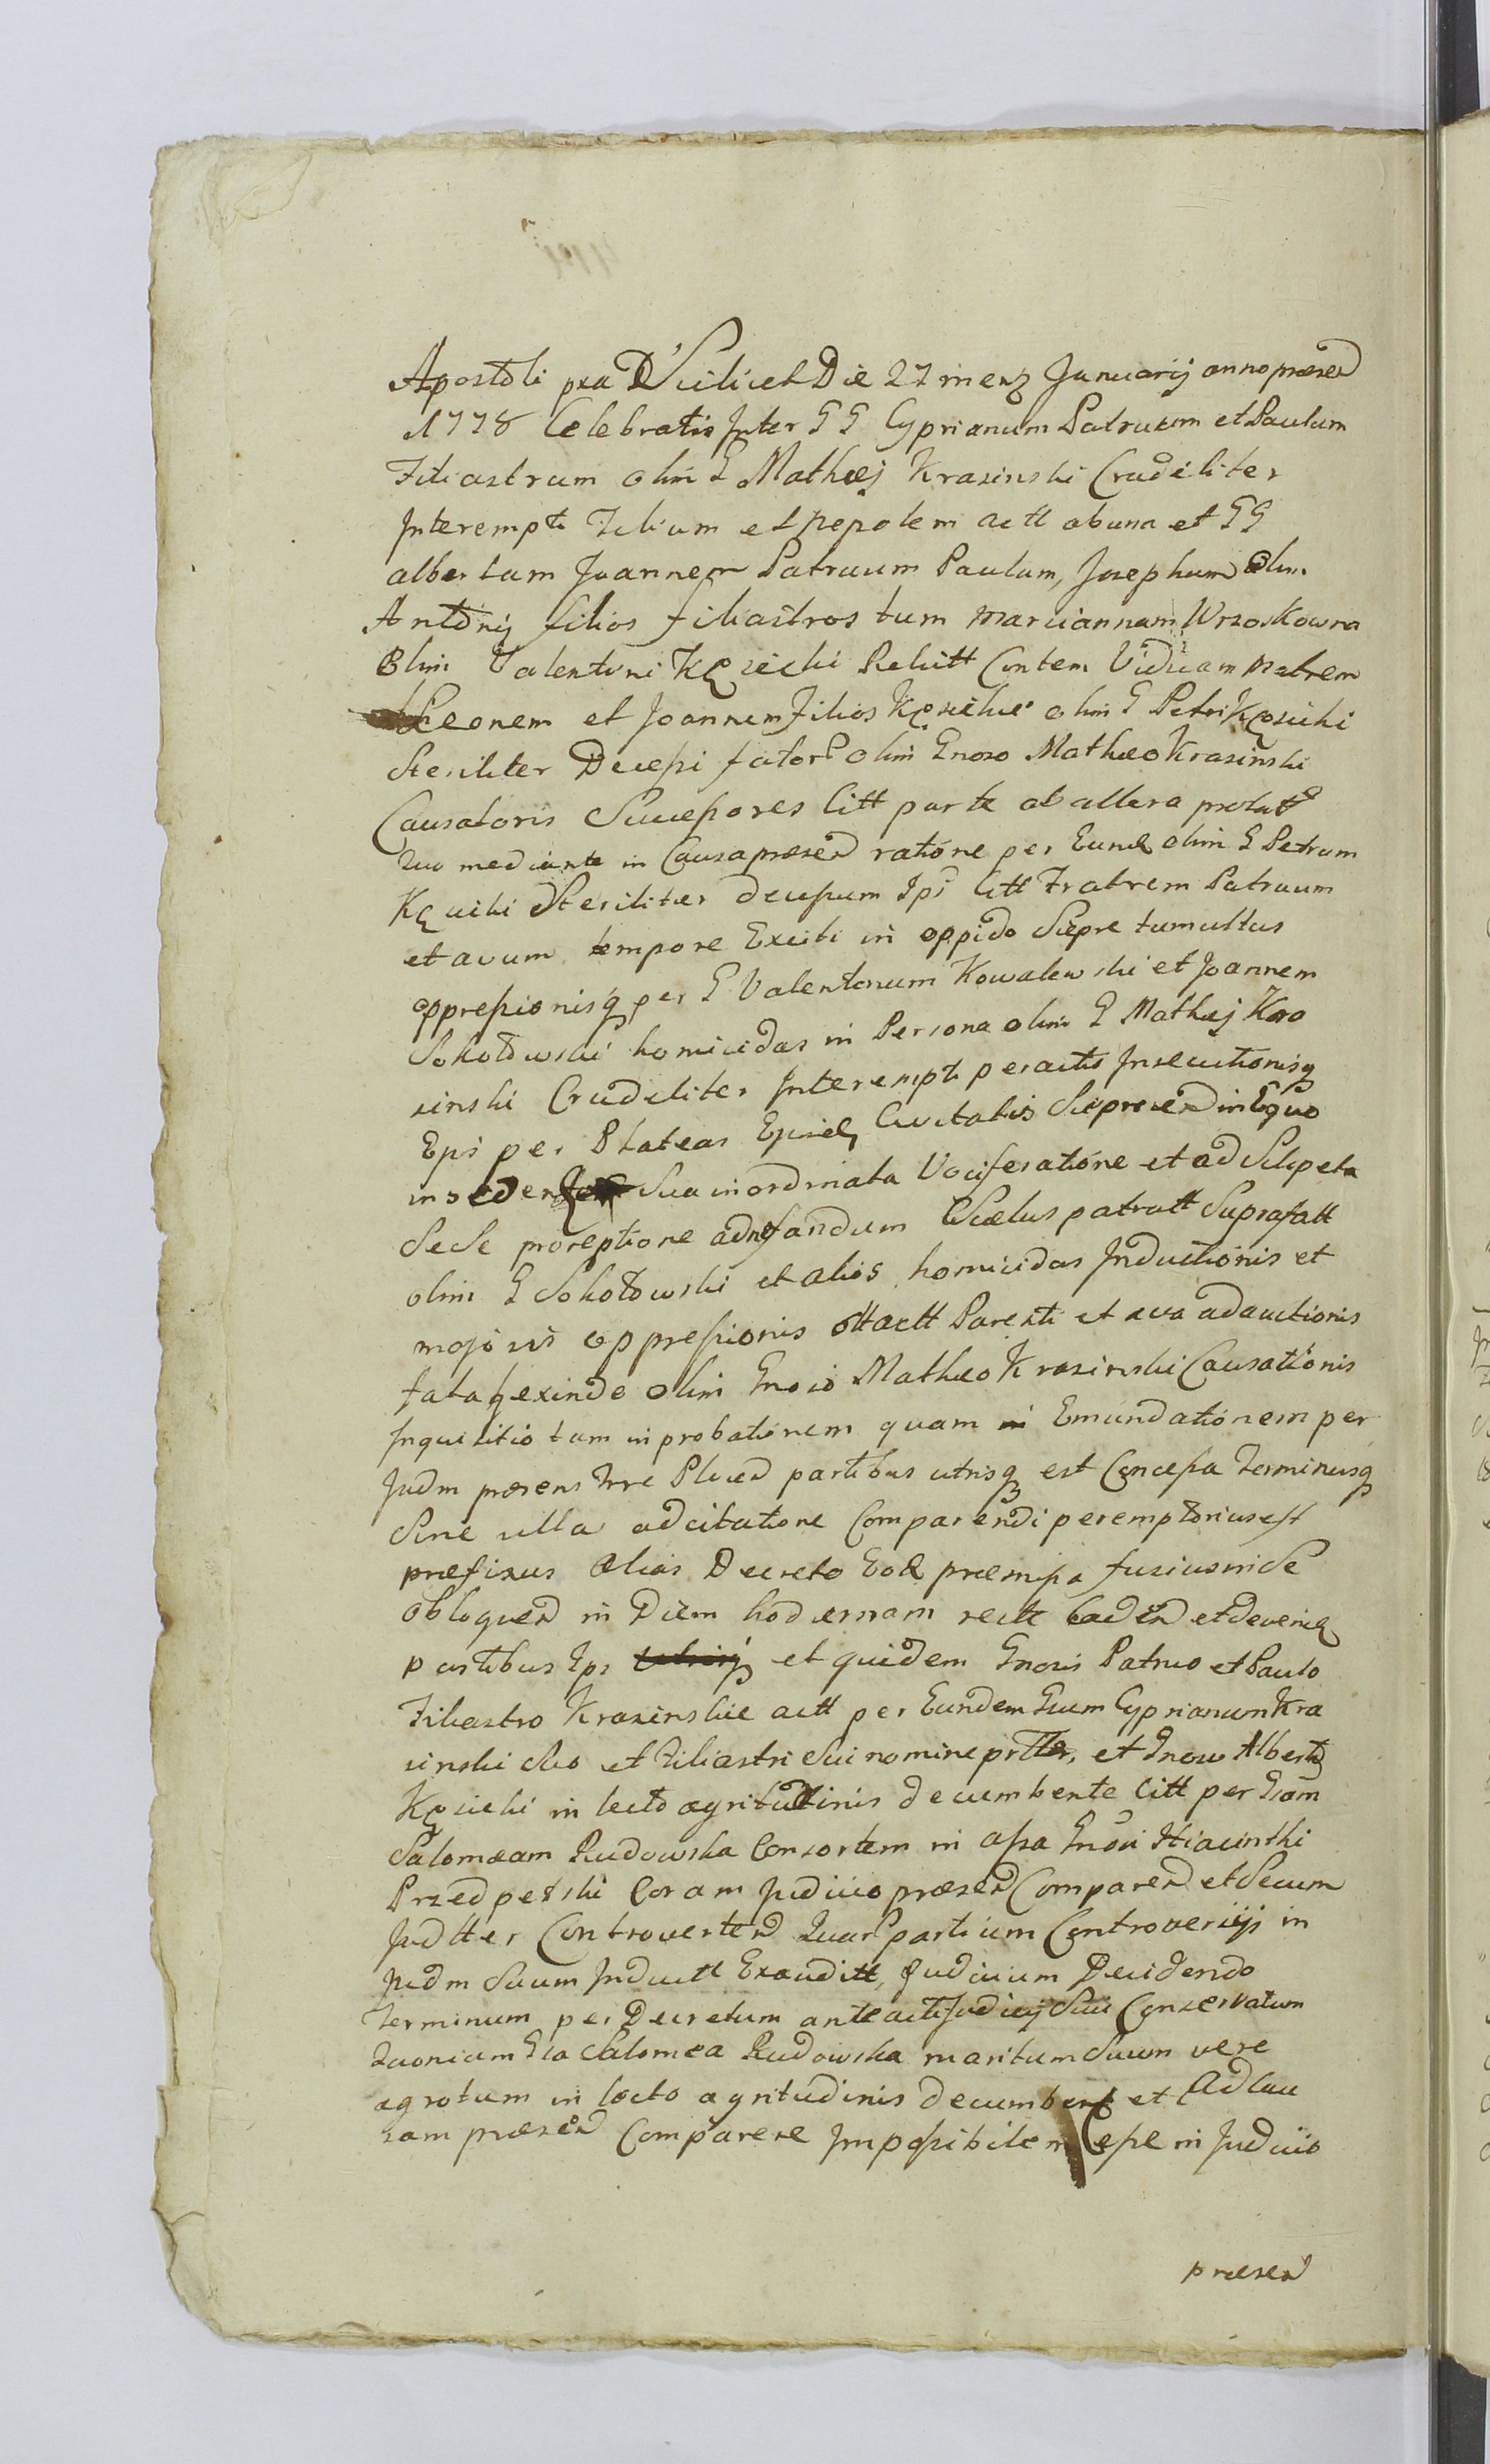 Apostoli pra D Scilicet Die 27 mensz Januarij anno præsen
1778 Celebratis Inter GG Cyprianum Patruum et Paulum
Filiastrum olim G Mathæj Krasinski Crudeliter
Interempti Filium et nepotem actt ab una et GG
albertum Joannem Patruum Paulum, Josephum olim
Antonij filios filiastros tum Mariannam Wrzoskowna
Olim Valentini Kęsicki Relictt Contem Viduam Matrem
Leonem et Joannem Filios Kęsickie olim G Petri Kęsicki
Steriliter Decessi fator olim Gnoso Matheo Krasinski
Causatoris Successores Citt parte ab altera prolatt
quo mediante in Causa præsen ratione per Eund olim G Petrum
Kęsicki Steriliter decessum Ips Citt Fratrem Patruum
et avum tempore Exciti in oppido Sieprc tumultus
oppressionisq per G Valentinum Kowalewski et Joannem
Sokołowski homicidas in Persona olim G Mathæj Kra
sinski Crudeliter Interempti peractis Insecutionisq
Eps per Plateas Ejusd Civitatis Sieprcen in Equo
inseden Sua inordinata Vociferatione et ad Sclopeta
Sese proreptione ad nefandum Scelus patratt Suprafatt
olim G Sokołowski et alios homicidas Inductionis et
majoris oppressionis actt Parenti et avo adauctionis
fataq exinde olim Gnoso Matheo Krasinski Causationis
Inquisitio tam in probationem quam Emundationem per
Judm præsens Trre Plocen partibus utrisq est Concessa Terminusq
Sine ulla adcitatione Comparendi peremptorius est
præfixus alias Decreto Eod præmissa fusius in Se
obloquen in Diem hodiernam recte caden et devenien
partibus Ips et quidem Gnosis Patruo et Paulo
Filiastro Krasinskie actt per Eundem Gsum Cyprianum Kra
sinski Suo et Filiastri Sui nomine prltter, et Gnoso Alberto
Kęsicki in lecto ægritudinis decumbente Citt per Gsam
Salomeam Rudowska Consortem in assa Gnosi Hiacinthi
Przedpełski Coram Judicio præsen Comparen et Secum
Judtter Controverten Quar partium Controversijs in
Judm Suum Inductt Exauditt, Judicium Decidendo
Terminum per Decretum anteacti Judicij Sui Conservatum
Quoniam Gsa Salomea Rudowska maritum Suum vere
ægrotum in lecto ægritudinis decumben et Ad Cau
sam præsen Comparere Impossibilem esse in Judicio
præsen